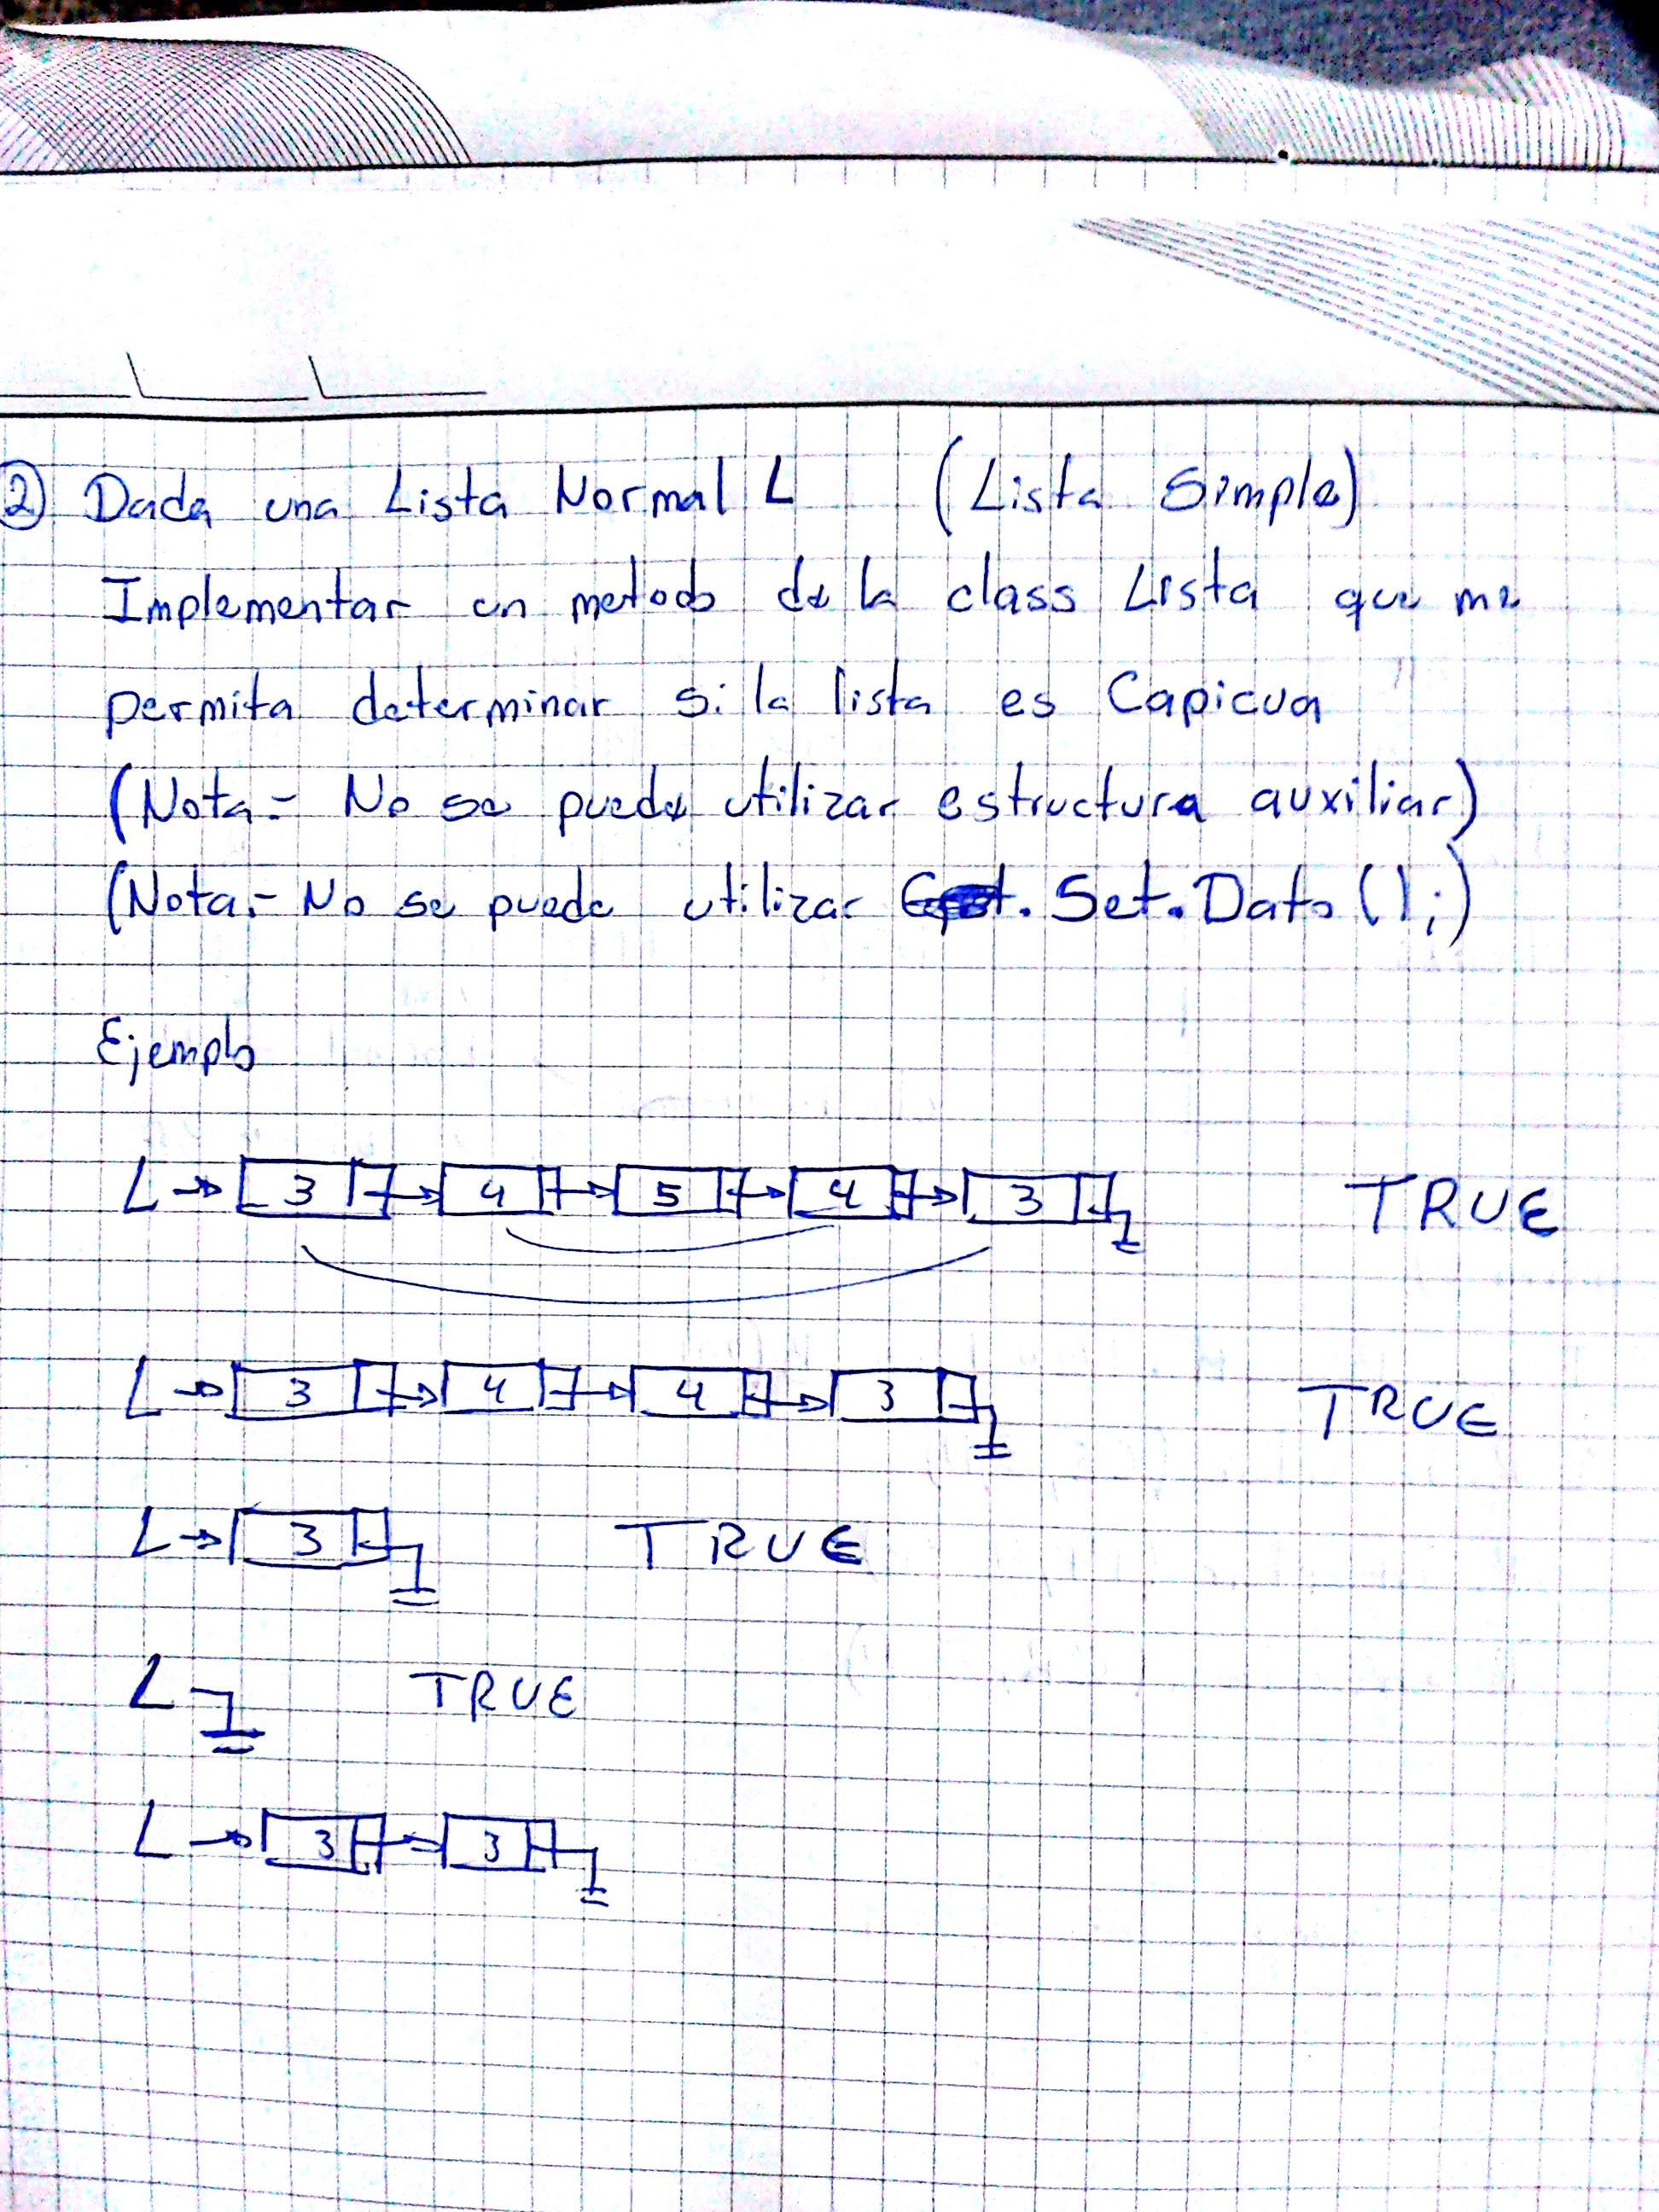 ② Dada una Lista Normal L (Lista Simple)
Implementar un metodo de la class Lista que me
permita determinar si la lista es Capicua
(Nota- No se puede utilizar estructura auxiliar)
(Nota.- No se puede utilizar . Set.Dato ();)
Ejemplo
L → 3 → 4 → 5 → 4 → 3 TRUE
L → 3 → 4 → 4 → 3 TRUE
L → 3 TRUE
L TRUE
L → 3 → 3